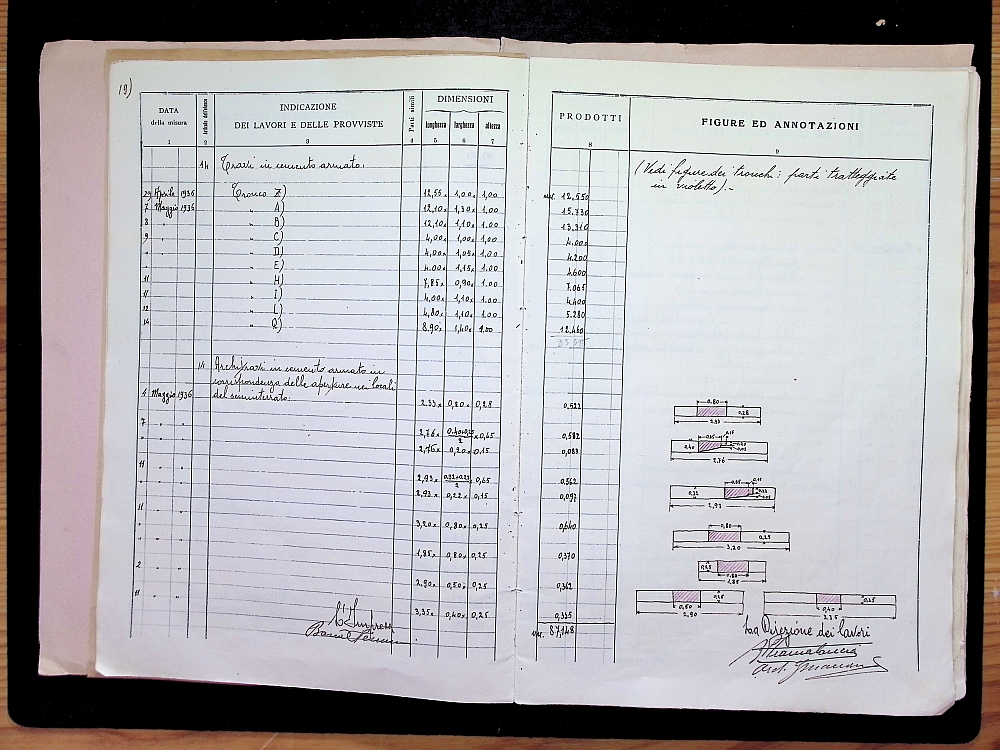 19)
DATA
della misura
Articolo dell'elenco
INDICAZIONE
DEI LAVORI E DELLE PROVVISTE
Parti simili
DIMENSIONI
lunghezza larghezza altezza
PRODOTTI
FIGURE ED ANNOTAZIONI
1 2 3 4 5 6 7 8 9
14 Travi in cemento armato.
(Vedi figure dei tronchi: parti tratteggiate
in violetto).-
29 Aprile 1936 Tronco Z) 12,55x 1,00x 1,00 mc. 12.550
7 Maggio 1936 " A) 12,10x 1,30x 1,00 15.730
8 " " B) 12,10x 1,10x 1.00 13.310
9 " " C) 4,00x 1,00x 1,00 4.000
" " D) 4,00x 1,05x 1.00 4.200
" E) 4.00x 1,15x 1.00 4.600
11 " H) 7,85x 0,90x 1.00 7.065
11 " I) 4,00x 1,10x 1.00 4.400
12 " L) 4,80x 1,10x 1.00 5.280
14 " Q) 8,90x 1,40x 1,00 12.460
14 Architravi in cemento armato in
corrispondenza delle aperture nei locali
del seminterrato:
4 Maggio 1936 2.33x 0,80x 0,28 0,522
7 " " 2,76x 0.40+0,25/2 x0,65 0,582
2,76x 0,20x 0,15 0,083
11 " " 2,93x 0,32+0,27/2 x0,65 0,562
2,93x 0,22x 0,15 0,097
11 " " 3,20x 0,80x 0,25 0,640
" " 1,85x 0,80x 0,25 0,370
2 " " 2,90x 0,50x 0,25 0,362
11 " " 3,35x 0,40x 0,25 0,335
mc. 87,148
0,80
0,28
2,33
0,65 0,15
0,40
2,76
0,65 0,15
0,32
2,93
0,80
0,25
3,20
0,80
1,85
0,50
2,90
0,25
0,40
3,35
L'Impresa
La Direzione dei lavori